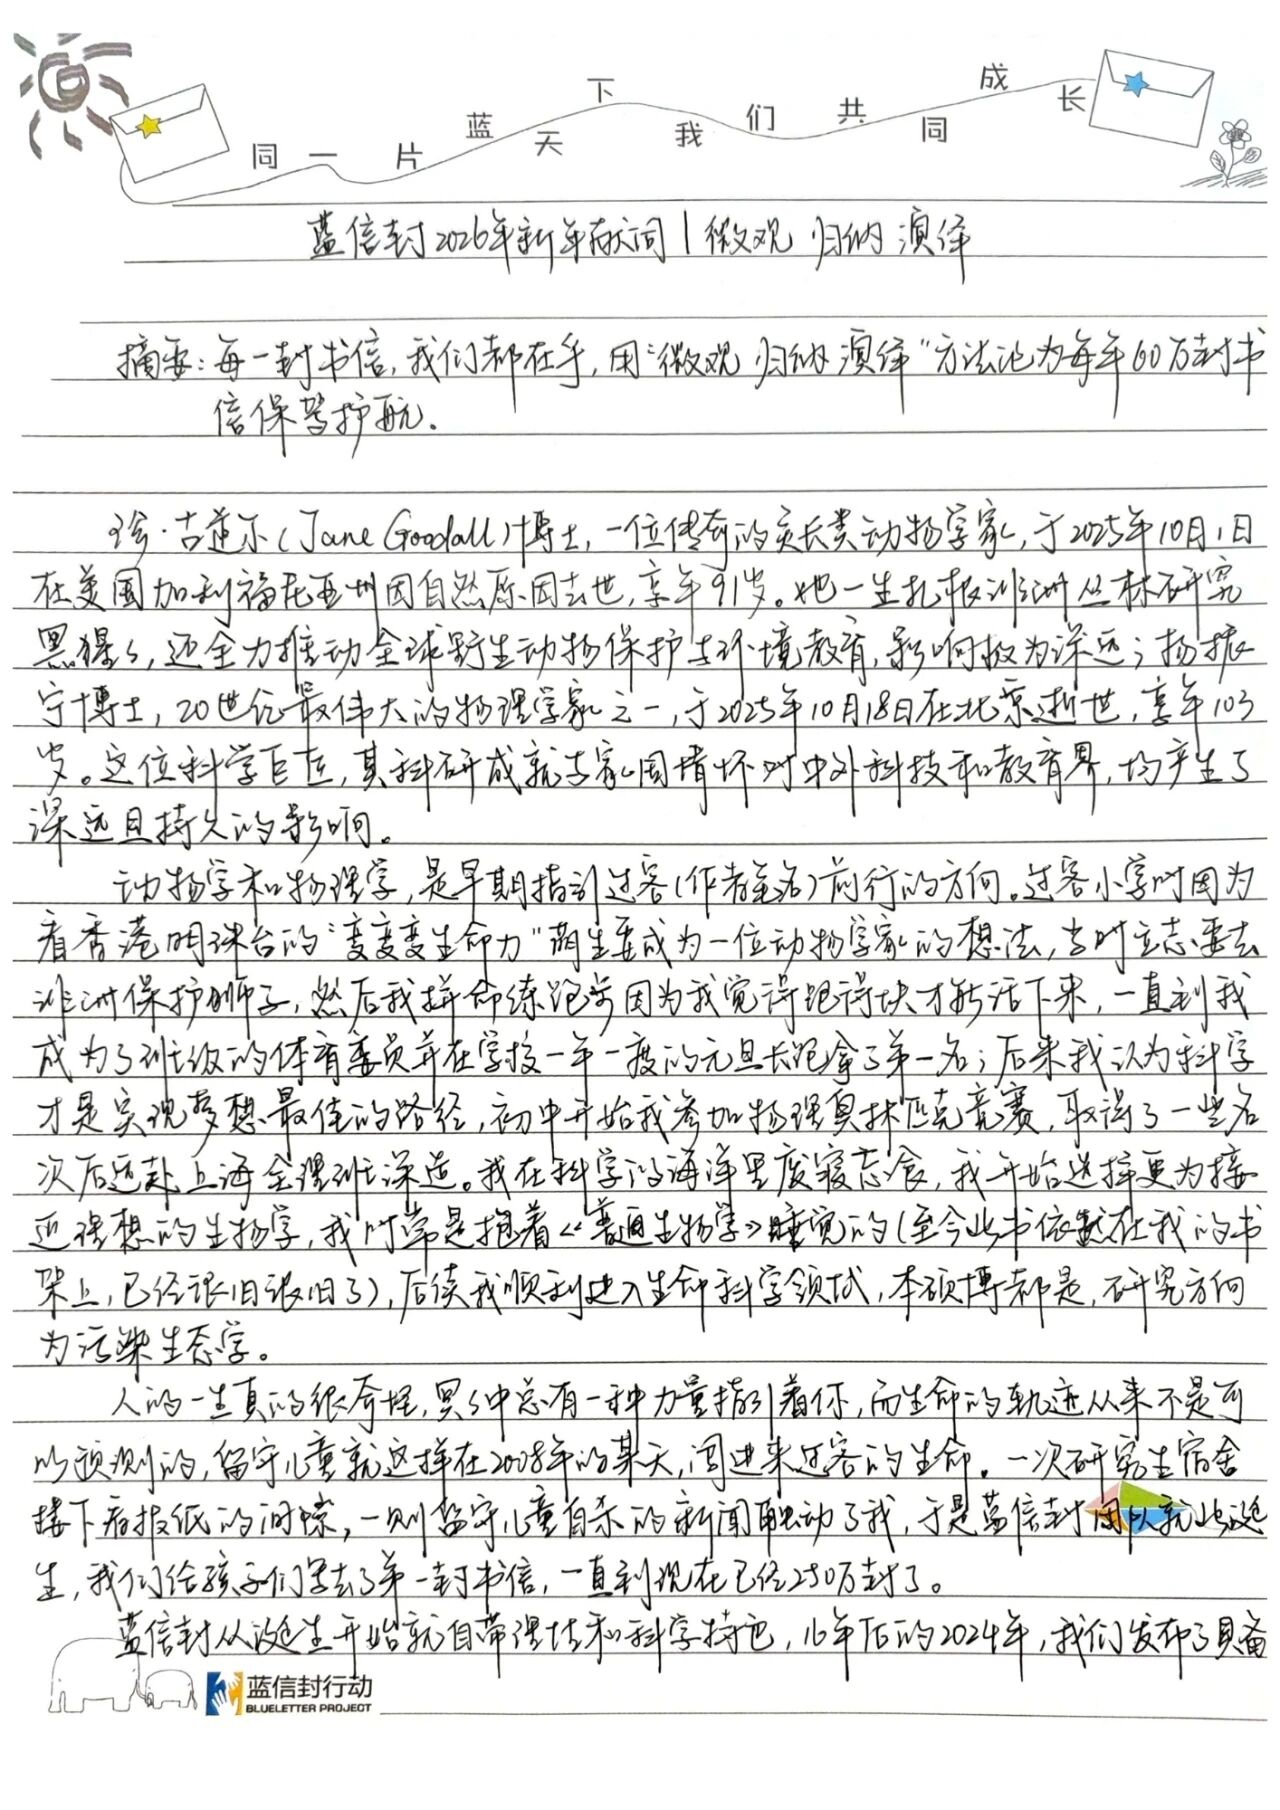 同一片蓝天下我们共同成长
蓝信封2026年新年献词 | 微观 归纳 演绎
摘要：每一封书信，我们都在乎，用“微观 归纳 演绎”方法论为每年60万封书
信保驾护航．
珍·古道尔（Jane Goodall）博士，一位传奇的灵长类动物学家，于2025年10月1日
在美国加利福尼亚州因自然原因去世，享年91岁。她一生扎根非洲丛林研究
黑猩猩，还全力推动全球野生动物保护与环境教育，影响极为深远；杨振
宁博士，20世纪最伟大的物理学家之一，于2025年10月18日在北京逝世，享年103
岁。这位科学巨匠，其科研成就与家国情怀对中外科技和教育界，均产生了
深远且持久的影响。
动物学和物理学，是早期指引过客（作者笔名）前行的方向。过客小学时因为
看香港明珠台的“变变变生命力”萌生要成为一位动物学家的想法，当时立志要去
非洲保护狮子，然后我拼命练跑步因为我觉得跑得快才能活下来，一直到我
成为了班级的体育委员并在学校一年一度的元旦长跑拿了第一名；后来我认为科学
才是实现梦想最佳的路径，初中开始我参加物理奥林匹克竞赛，取得了一些名
次后远赴上海全理班深造。我在科学的海洋里废寝忘食，我开始选择更为接
近理想的生物学，我时常是抱着《普通生物学》睡觉的（至今此书依然在我的书
架上，已经很旧很旧了），后续我顺利进入生命科学领域，本硕博都是，研究方向
为污染生态学。
人的一生真的很奇怪，冥冥中总有一种力量指引着你，而生命的轨迹从来不是可
以预测的，留守儿童就这样在2008年的某天，闯进来过客的生命。一次研究生宿舍
楼下看报纸的间隙，一则留守儿童自杀的新闻触动了我，于是蓝信封团队就此诞
生，我们给孩子们写去了第一封书信，一直到现在已经250万封了。
蓝信封从诞生开始就自带理性和科学特色，16年后的2024年，我们发布了具备
蓝信封行动
BLUELETTER PROJECT